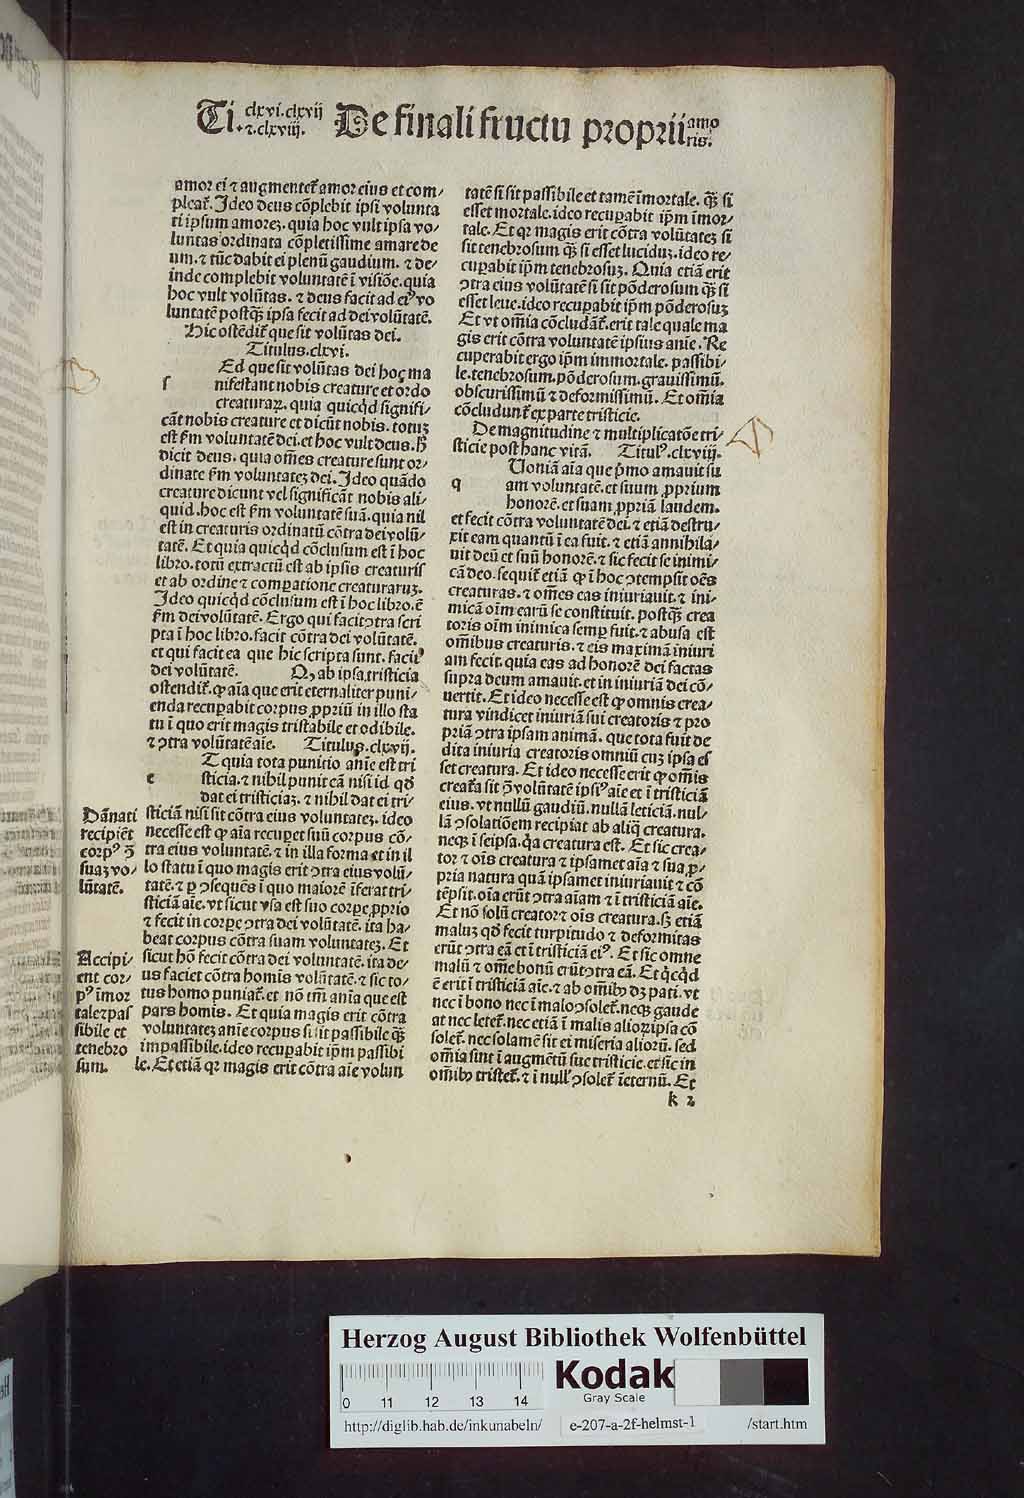 Ti clxvi.clxvij ⁊.clxviij. De finali fructu proprii amoris.
amor ei ⁊ augmentet̃ amor eius et com⸗
pleat̃. Ideo deus cõplebit ipsi volunta
ti ipsum amoreȝ. quia hoc vult ipsa vo⸗
luntas ordinata cõpletissime amare de
um. ⁊ tũc dabit ei plenũ gaudium. ⁊ de⸗
inde complebit voluntatẽ ĩ visiõe. quia
hoc vult volũtas. ⁊ deus facit ad eiꝰ vo
luntatẽ postq̃ȝ ipsa fecit ad dei volũtatẽ.
Hic ostẽdit̃ que sit volũtas dei.
Titulus.clxvi.
Ed que sit volũtas dei hoc ma
s nifestant nobis creature et ordo
creaturaꝝ. quia quicq̃d signifi⸗
cãt nobis creature et dicũt nobis. totuȝ
est ẜm voluntatẽ dei. et hoc vult deus. ⁊ h̃
dicit deus. quia om̃es creature sunt or⸗
dinate ẜm voluntateȝ dei. Ideo quãdo
creature dicunt vel significãt nobis ali⸗
quid. hoc est ẜm voluntatẽ suã. quia nil
est in creaturis ordinatũ cõtra dei volũ⸗
tatẽ. Et quia quicq̃d cõclusum est ĩ hoc
libro. totũ extractũ est ab ipsis creaturis
et ab ordine ⁊ comꝑatione creaturaruȝ.
Ideo quicq̃d cõclusum est ĩ hoc libro. ẽ
ẜm dei volũtatẽ. Ergo qui facit ꝯtra scri
pta ĩ hoc libro. facit cõtra dei volũtatẽ.
et qui facit ea que hic scripta sunt. facit
dei volũtatẽ. Q, ab ipsa tristicia
ostendit̃. ꝙ aĩa que erit eternaliter puni⸗
enda recuꝑabit corpus ꝓpriũ in illo sta
tu ĩ quo erit magis tristabile et odibile.
⁊ ꝯtra volũtatẽ aĩe. Titulus.clxvij.
T quia tota punitio anĩe est tri
e sticia. ⁊ nihil punit eã nisi id qd̃
dat ei tristiciaȝ. ⁊ nihil dat ei tri⸗
sticiã nisi sit cõtra eius voluntateȝ. ideo
necesse est ꝙ aĩa recuꝑet suũ corpus cõ⸗
tra eius voluntatẽ. ⁊ in illa forma et in il
lo statu ĩ quo magis erit ꝯtra eius volũ⸗
tatẽ. ⁊ ꝑ ꝯsequẽs ĩ quo maiorẽ ĩferat tri⸗
sticiã aĩe. vt sicut vsa est suo corpe ꝓprio
⁊ fecit in corpe ꝯtra dei volũtatẽ. ita ha⸗
beat corpus cõtra suam voluntateȝ. Et
sicut hõ fecit cõtra dei voluntatẽ. ita de⸗
us faciet cõtra homĩs volũtatẽ. ⁊ sic to⸗
tus homo puniat̃. et nõ tm̃ anĩa que est
pars homĩs. Et quia magis erit cõtra
voluntateȝ anĩe corpus si sit passibile q̃ȝ
impassibile. ideo recuꝑabit ip̃m passibi
le. Et etiã qꝛ magis erit cõtra aĩe volun
Dãnati
recipiẽt
corpꝰ ꝯ̃
suaȝ vo⸗
lũtatẽ.
Accipi⸗
ent cor⸗
pꝰ ĩmor
tale ⁊ pas
sibile et
tenebro
sum.
tatẽ si sit passibile et tamẽ ĩmortale. q̃ȝ si
esset mortale. ideo recuꝑabit ip̃m ĩmor⸗
tale. Et qꝛ magis erit cõtra volũtateȝ si
sit tenebrosum q̃ȝ si esset luciduȝ. ideo re⸗
cuꝑabit ip̃m tenebrosuȝ. Quia etiã erit
ꝯtra eius volũtatẽ si sit põderosum q̃ȝ si
esset leue. ideo recuꝑabit ip̃m põderosuȝ
Et vt om̃ia cõcludãt̃. erit tale quale ma
gis erit cõtra voluntatẽ ipsius anĩe. Re
cuperabit ergo ip̃m immortale. passibi⸗
le. tenebrosum. põderosum. grauissimũ.
obscurissimũ ⁊ deformissimũ. Et om̃ia
cõcludunt̃ ex parte tristicie.
De magnitudine ⁊ multiplicatõe tri⸗
sticie post hanc vitã. Titulꝰ.clxviij.
Uoniã aĩa que p̃mo amauit su
q am voluntatẽ. et suum ꝓprium
honorẽ. et suam ꝓpriã laudem.
et fecit cõtra voluntatẽ dei. ⁊ etiã destru⸗
xit eam quantũ ĩ ea fuit. ⁊ etiã annihila⸗
uit deũ et suũ honorẽ. ⁊ sic fecit se inimi⸗
cã deo. sequit̃ etiã ꝙ ĩ hoc ꝯtempsit oẽs
creaturas. ⁊ om̃es eas iniuriauit. ⁊ ini⸗
micã oĩm earũ se constituit. postq̃ȝ crea
toris oĩm inimica semꝑ fuit. ⁊ abusa est
om̃ibus creaturis. ⁊ eis maximã iniuri
am fecit. quia eas ad honorẽ dei factas
supra deum amauit. et in iniuriã dei cõ⸗
uertit. Et ideo necesse est ꝙ omnis crea⸗
tura vindicet iniuriã sui creatoris ⁊ pro
priã ꝯtra ipsam animã. que tota fuit de
dita iniuria creatoris omniũ cuȝ ipsa es
set creatura. Et ideo necesse erit ꝙ om̃is
creat̃a sit ꝯ̃ volũtatẽ ipsiꝰ aĩe et ĩ tristiciã
eius. vt nullũ gaudiũ. nullã leticiã. nul⸗
lã ꝯsolatiõem recipiat ab aliq̃ creatura.
neqȝ ĩ seipsa. q̃a creatura est. Et sic crea⸗
tor ⁊ oĩs creatura ⁊ ipsamet aĩa ⁊ sua ꝓ⸗
pria natura quã ipsamet iniuriauit ⁊ cõ
tẽpsit. oĩa erũt ꝯtra aĩam ⁊ ĩ tristiciã aĩe.
Et nõ solũ creator ⁊ oĩs creatura. sȝ etiã
maluȝ qd̃ fecit turpitudo ⁊ deformitas
erũt ꝯtra eã et ĩ tristiciã eiꝰ. Et sic omne
malũ ⁊ om̃e bonũ erũt ꝯtra eã. Et q̃cq̃d
ẽ erit ĩ tristiciã aĩe. ⁊ ab om̃ibꝰ dȝ pati. vt
nec ĩ bono nec ĩ malo ꝯsolet̃. neqȝ gaude
at nec letet̃. nec etiã ĩ malis alioꝝ ipsa cõ
solet̃. nec solamẽ sit ei miseria aliorũ. sed
om̃ia sint ĩ augmẽtũ sue tristicie. et sic in
om̃ibꝰ tristet̃. ⁊ ĩ nullꝰ ꝯsolet̃ ĩeternũ. Et
k 2
Herzog August Bibliothek Wolfenbüttel
0 11 12 13 14
Kodak
Gray Scale
http://diglib.hab.de/inkunabeln/ e-207-a-2f-helmst-1 /start.htm